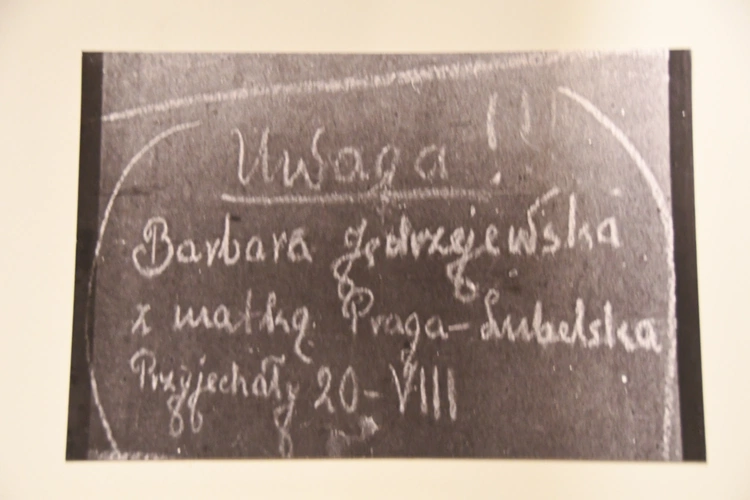 Uwaga!!!
Barbara Jędrzejewska
z matką Praga-Lubelska
Przyjechały 20-VIII